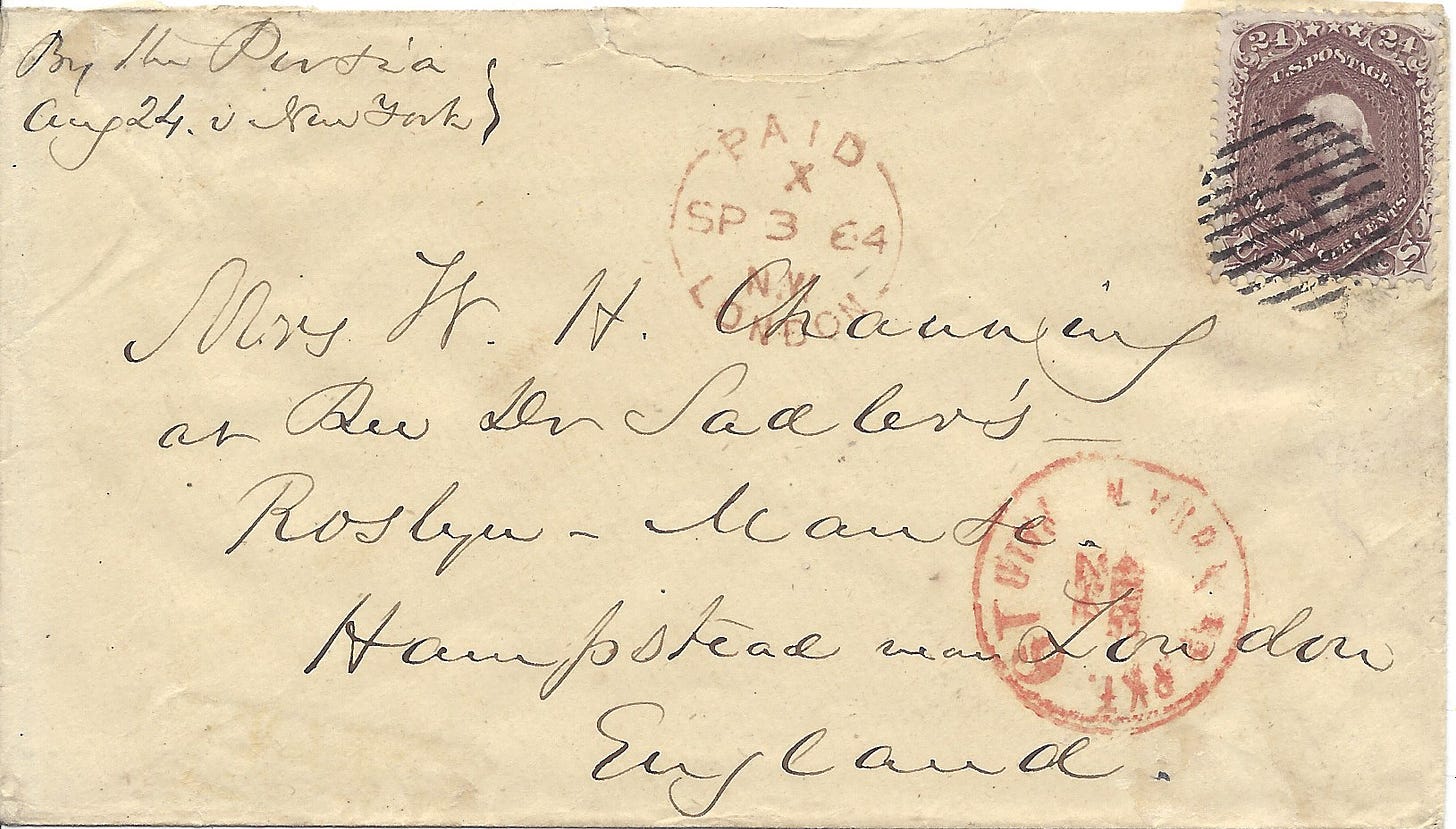 By the Persia
Aug 24. v New York
24 24
U.S. POSTAGE
PAID
X
SP 3 64
N.W.
LONDON
Mrs W. H. Channing
at Rev Dr Sadler's
Roslyn - Manse.
Hampstead near London
England.
PKT.